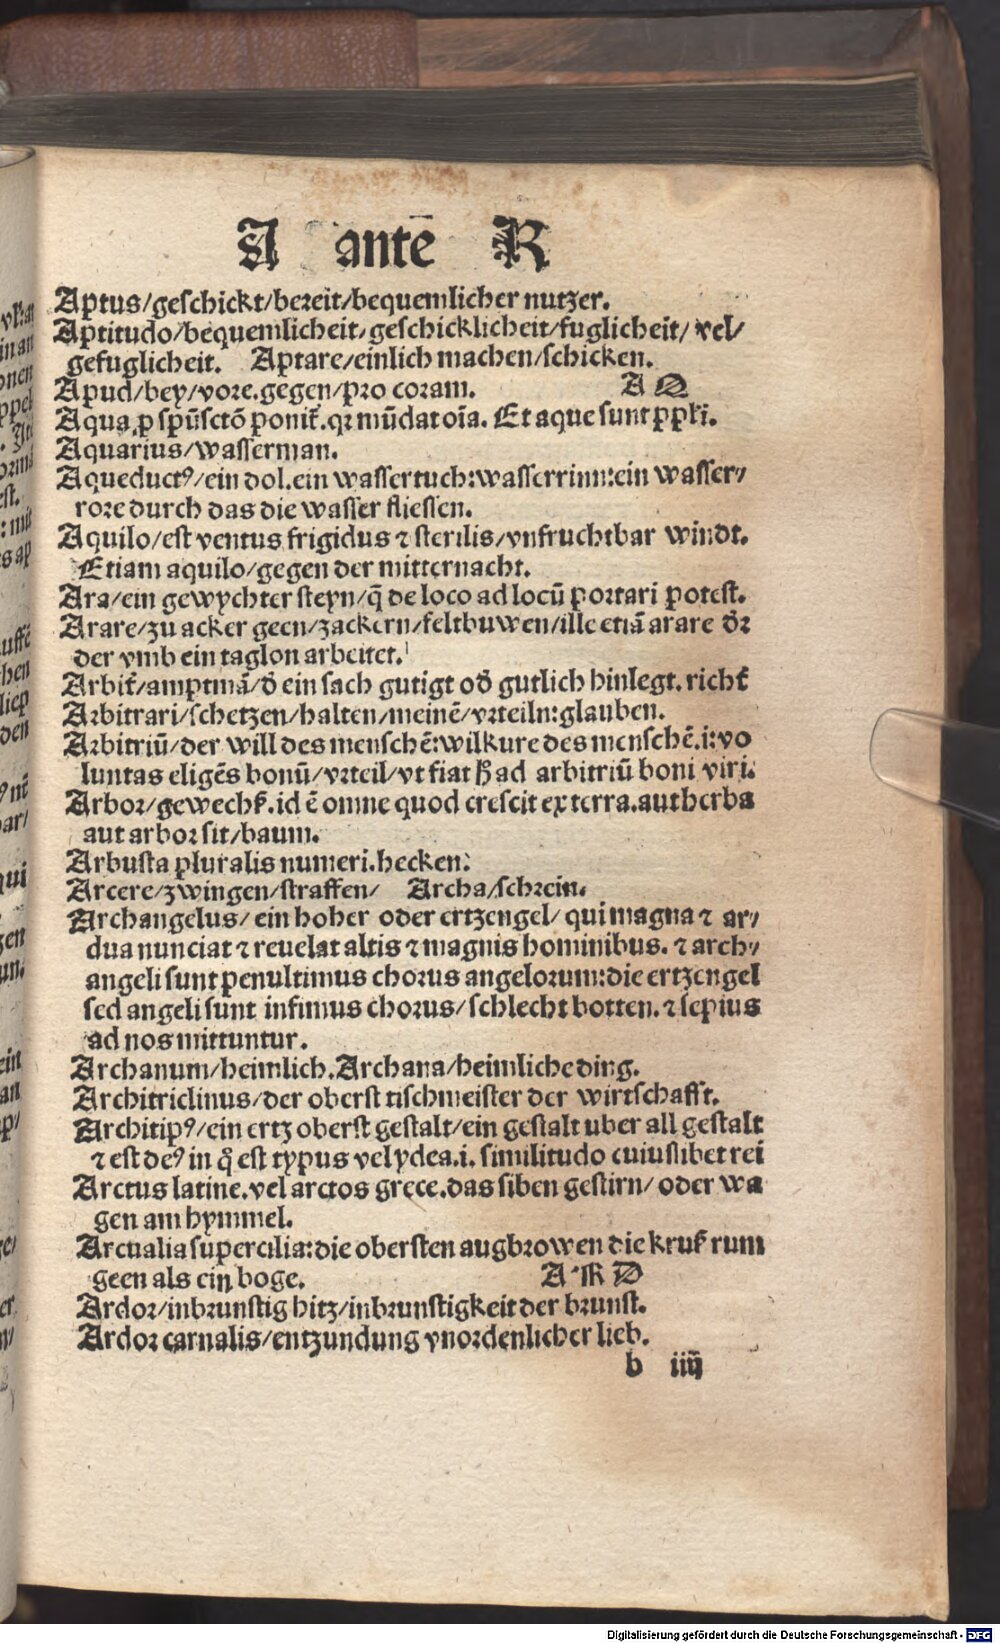 A antē R
Aptus/geschickt/bereit/bequemlicher nutzer.
Aptitudo/bequemlicheit/geschicklicheit/fuglicheit/ vel/
gefuglicheit. Aptare/einlich machen/schicken.
Apud/bey/vore.gegen/pro coram. A Q
Aqua, p spūsctō ponit̄.qꝛ mūdat oīa. Et aque sunt ppłi.
Aquarius/wasserman.
Aqueductꝰ/ein dol.ein wassertuch:wasserrinn:ein wasser/
rore durch das die wasser fliessen.
Aquilo/est ventus frigidus ⁊ sterilis/vnfruchtbar windt.
Etiam aquilo/gegen der mitternacht.
Ara/ein gewychter steyn/q̄ de loco ad locū portari potest.
Arare/zu acker geen/zackern/feltbuwen/ille etiā arare dr̄
der vmb ein taglon arbeitet.
Arbit̄/amptmā/d̄ ein sach gutigt od̄ gutlich hinlegt.richt̄
Arbitrari/schetzen/halten/meinē/vrteiln:glauben.
Arbitriū/der will des menschē:wilkure des menschē.i:vo
luntas eligēs bonū/vrteil/vt fiat ad arbitriū boni viri.
Arbor/gewechß.id ē omne quod crescit ex terra.aut herba
aut arbor sit/baum.
Arbusta pluralis numeri.hecken:
Arcere/zwingen/straffen/ Archa/schrein.
Archangelus/ ein hoher oder ertzengel/ qui magna ⁊ ar/
dua nunciat ⁊ reuelat altis ⁊ magnis hominibus. ⁊ arch/
angeli sunt penultimus chorus angelorum:die ertzengel
sed angeli sunt infimus chorus/schlecht botten. ⁊ sepius
ad nos mittuntur.
Archanum/heimlich.Archana/heimliche ding.
Architriclinus/der oberst tischmeister der wirtschafft.
Architipꝰ/ein ertz oberst gestalt/ein gestalt uber all gestalt
⁊ est deꝰ in q̊ est typus vel ydea.i. similitudo cuiuslibet rei
Arctus latine.vel arctos grece.das siben gestirn/ oder wa
gen am hymmel.
Arcualia supercilia:die obersten augbrowen die rum
geen als ein boge. A R D
Ardor/inbrunstig hitz/inbrunstigkeit der brunst.
Ardor carnalis/entzundung vnordenlicher lieb.
b iiij
Digitalisierung gefördert durch die Deutsche Forschungsgemeinschaft - DFG